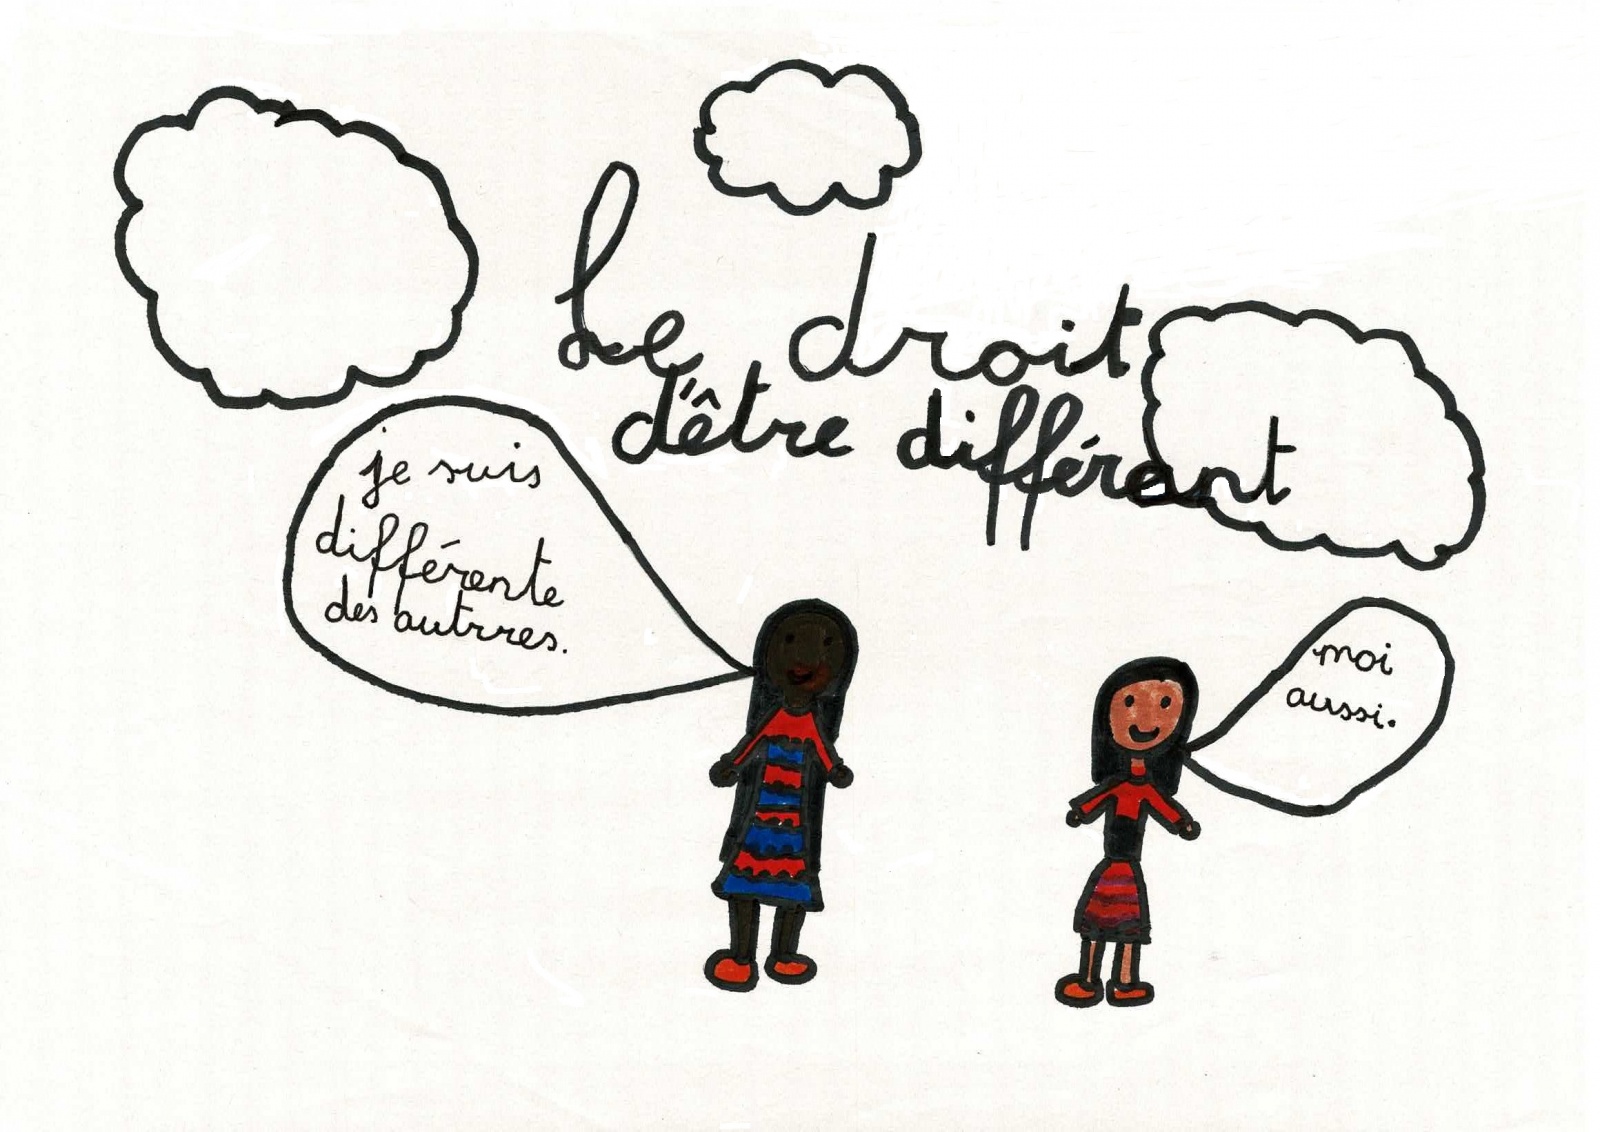 Le droit
d'être différent
je suis
différente
des autrres.
moi
aussi.